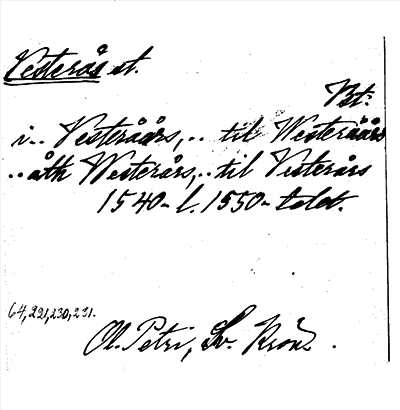 Vesterås st.
Bst:
i.. Vesteråårs,.. till Westeråårs
..åth Westerårs,.. til Vesterårs
1540- l. 1550-talet.
64,221,230,231.
Ol. Petri, Sv. Krön.